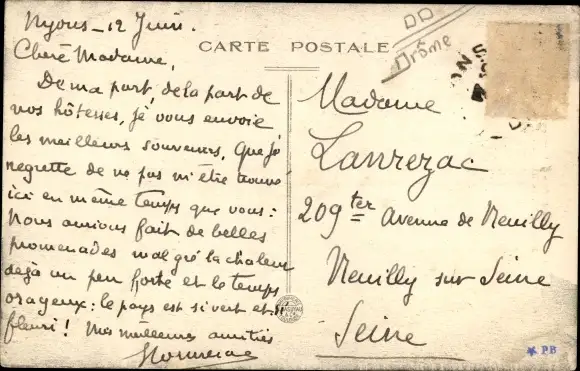 Nyons - 12 Juin.
Chère Madame,
De ma part, de la part de
vos hôtesses, je vous envoie
les meilleurs souvenirs, que je
regrette de ne pas m'être trouvé
ici en même temps que vous :
Nous aurions fait de belles
promenades malgré la chaleur
déjà un peu forte et le temps
orageux : le pays est si vert et si
fleuri ! Mes meilleures amitiés
CARTE POSTALE
Drôme
Madame
Lanrezac
209 ter Avenue de Neuilly
Neuilly sur Seine
Seine
PB